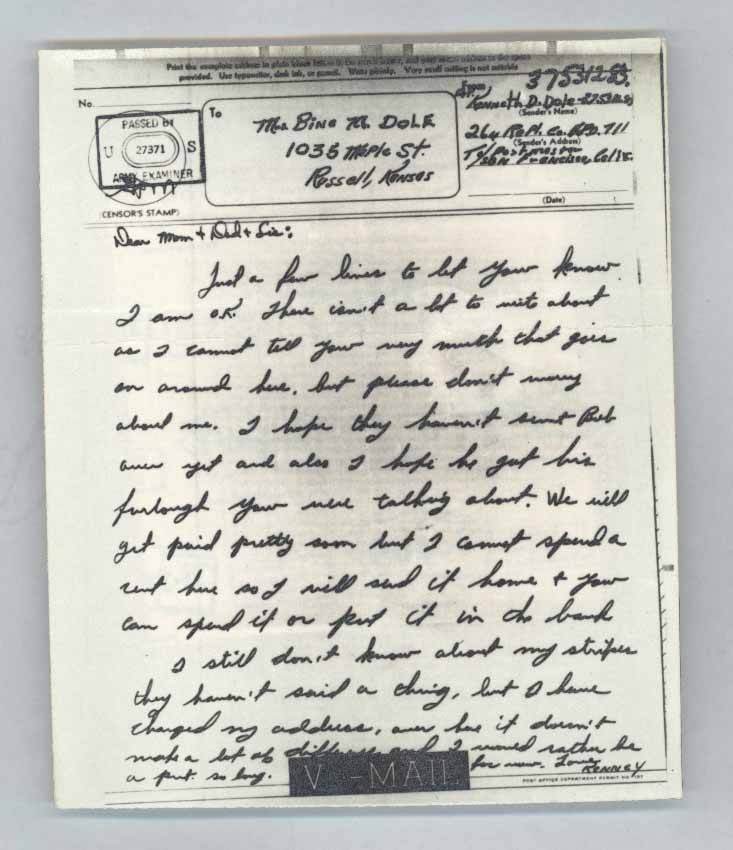 Print the complete address in plain block letters in the panel below, and your return address in the space
provided. Use typewriter, dark ink, or pencil. Write plainly. Very small writing is not suitable
No.
PASSED BY
U 27371 S
ARMY EXAMINER
(CENSOR'S STAMP)
To
Mrs Bina M. DOLE
1035 Maple St.
Russell, Kansas
37531285
From
Kenneth D. Dole
(Sender's Name)
264 Repl. Co. APO. 711
(Sender's Address)
c/o Postmaster
San Francisco, Calif.
(Date)
Dear Mom + Dad + Sis:
Just a few lines to let you know
I am O.K. There isn't a lot to write about
as I cannot tell you very much that goes
on around here, but please don't worry
about me. I hope they haven't sent Bob
over yet and also I hope he got his
furlough you were talking about. We will
get paid pretty soon but I cannot spend a
cent here so I will send it home + you
can spend it or put it in the bank
I still don't know about my stripes
they haven't said a thing, but I have
changed my address, over here it doesn't
make a lot of difference and I would rather be
a pvt. so long. for now. Love
KENNEY
V -MAIL
POST OFFICE DEPARTMENT PERMIT NO.